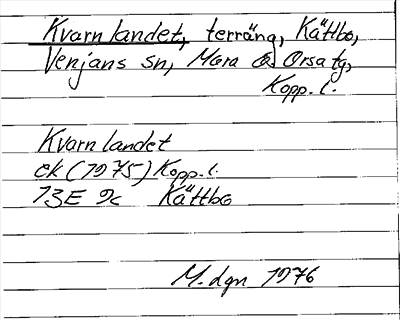 Kvarnlandet, terräng, Kättbo,
Venjans sn, Mora o. Orsa tg,
Kopp. l.
Kvarnlandet
ek (1975) Kopp. l.
13E 9c Kättbo
M. dgn 1976